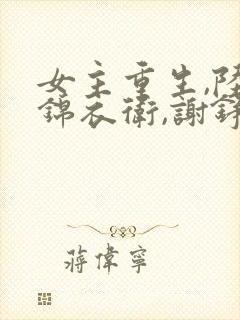 女主重生,陸
錦衣衛,謝錚
蔣偉寧